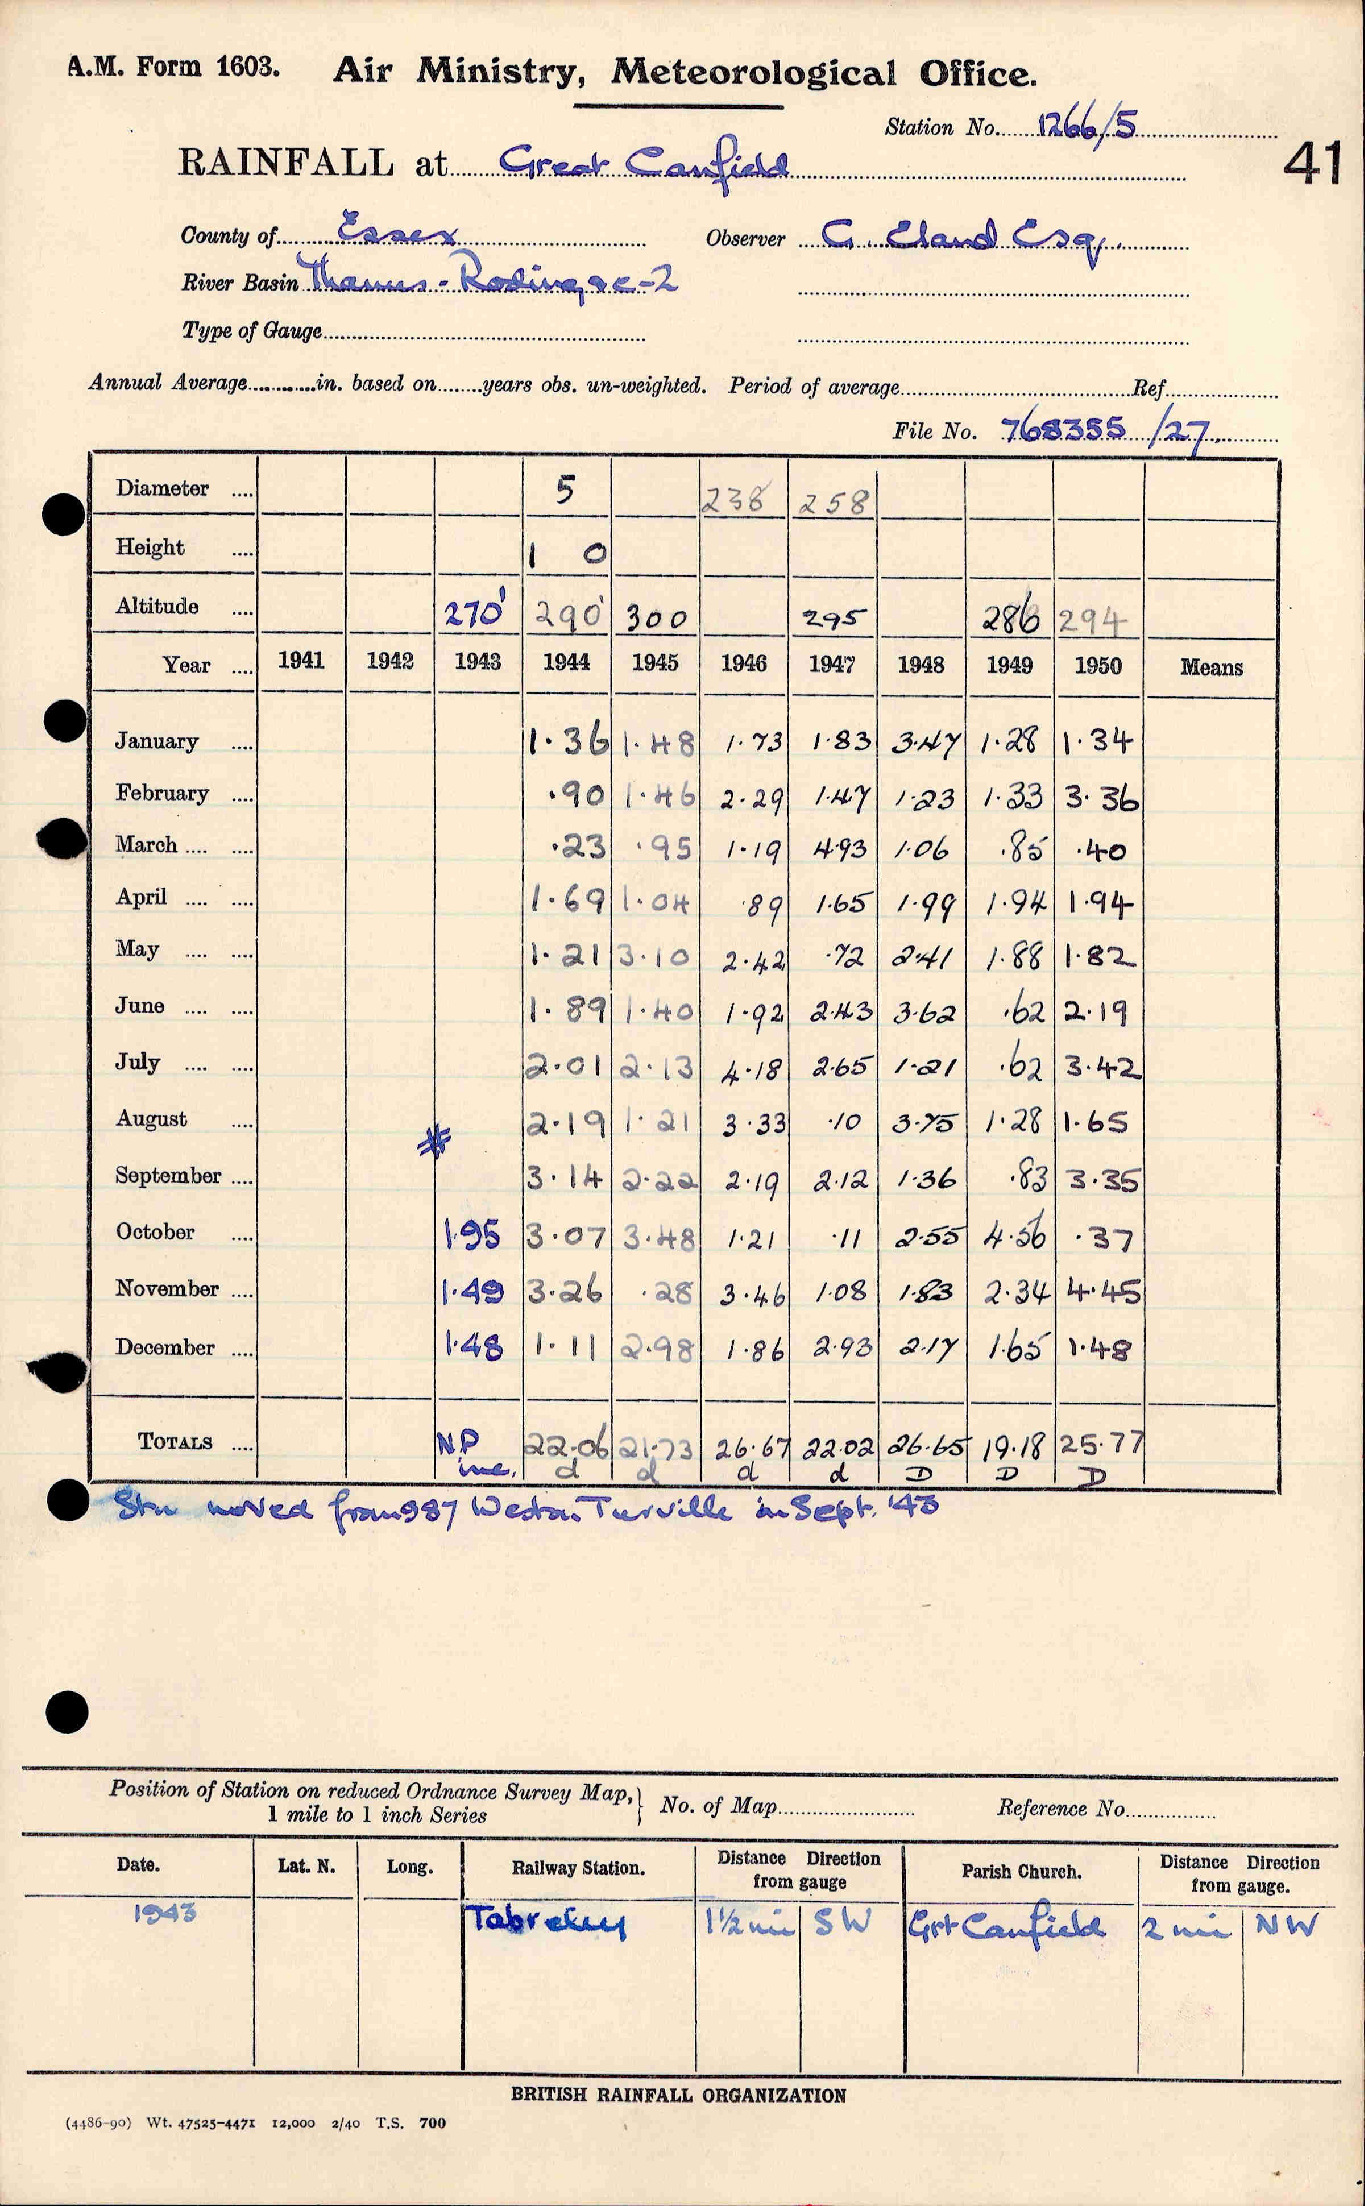 A.M. Form 1603. Air Ministry, Meteorological Office.
Station No. 1266/5
41
RAINFALL at Great Canfield
County of Essex Observer G. Eland Esq.
River Basin Thames - Roding &c - 2
Type of Gauge
Annual Average in. based on years obs. un-weighted. Period of average Ref
File No. 768355 /27
Diameter 5 238 258
Height 1 0
Altitude 270' 290' 300 295 286 294
Year 1941 1942 1943 1944 1945 1946 1947 1948 1949 1950 Means
January 1.36 1.48 1.73 1.83 3.47 1.28 1.34
February .90 1.46 2.29 1.47 1.23 1.33 3.36
March .23 .95 1.19 4.93 1.06 .85 .40
April 1.69 1.04 .89 1.65 1.99 1.94 1.94
May 1.21 3.10 2.42 .72 2.41 1.88 1.82
June 1.89 1.40 1.92 2.43 3.62 .62 2.19
July 2.01 2.13 4.18 2.65 1.21 .62 3.42
August 2.19 1.21 3.33 .10 3.75 1.28 1.65
September 3.14 2.22 2.19 2.12 1.36 .83 3.35
October 1.95 3.07 3.48 1.21 .11 2.55 4.56 .37
November 1.49 3.26 .28 3.46 1.08 1.83 2.34 4.45
December 1.48 1.11 2.98 1.86 2.93 2.17 1.65 1.48
TOTALS NP 22.06 21.73 26.67 22.02 26.65 19.18 25.77
inc. d d d d D D D
Stn moved from 987 Weston Turville in Sept. '43
Position of Station on reduced Ordnance Survey Map, } No. of Map Reference No.
1 mile to 1 inch Series
Date. Lat. N. Long. Railway Station. Distance Direction from gauge Parish Church. Distance Direction from gauge.
1943 1½ mi SW Grt Canfield 2 mi NW
BRITISH RAINFALL ORGANIZATION
(4486-90) Wt. 47525-4471 12,000 2/40 T.S. 700